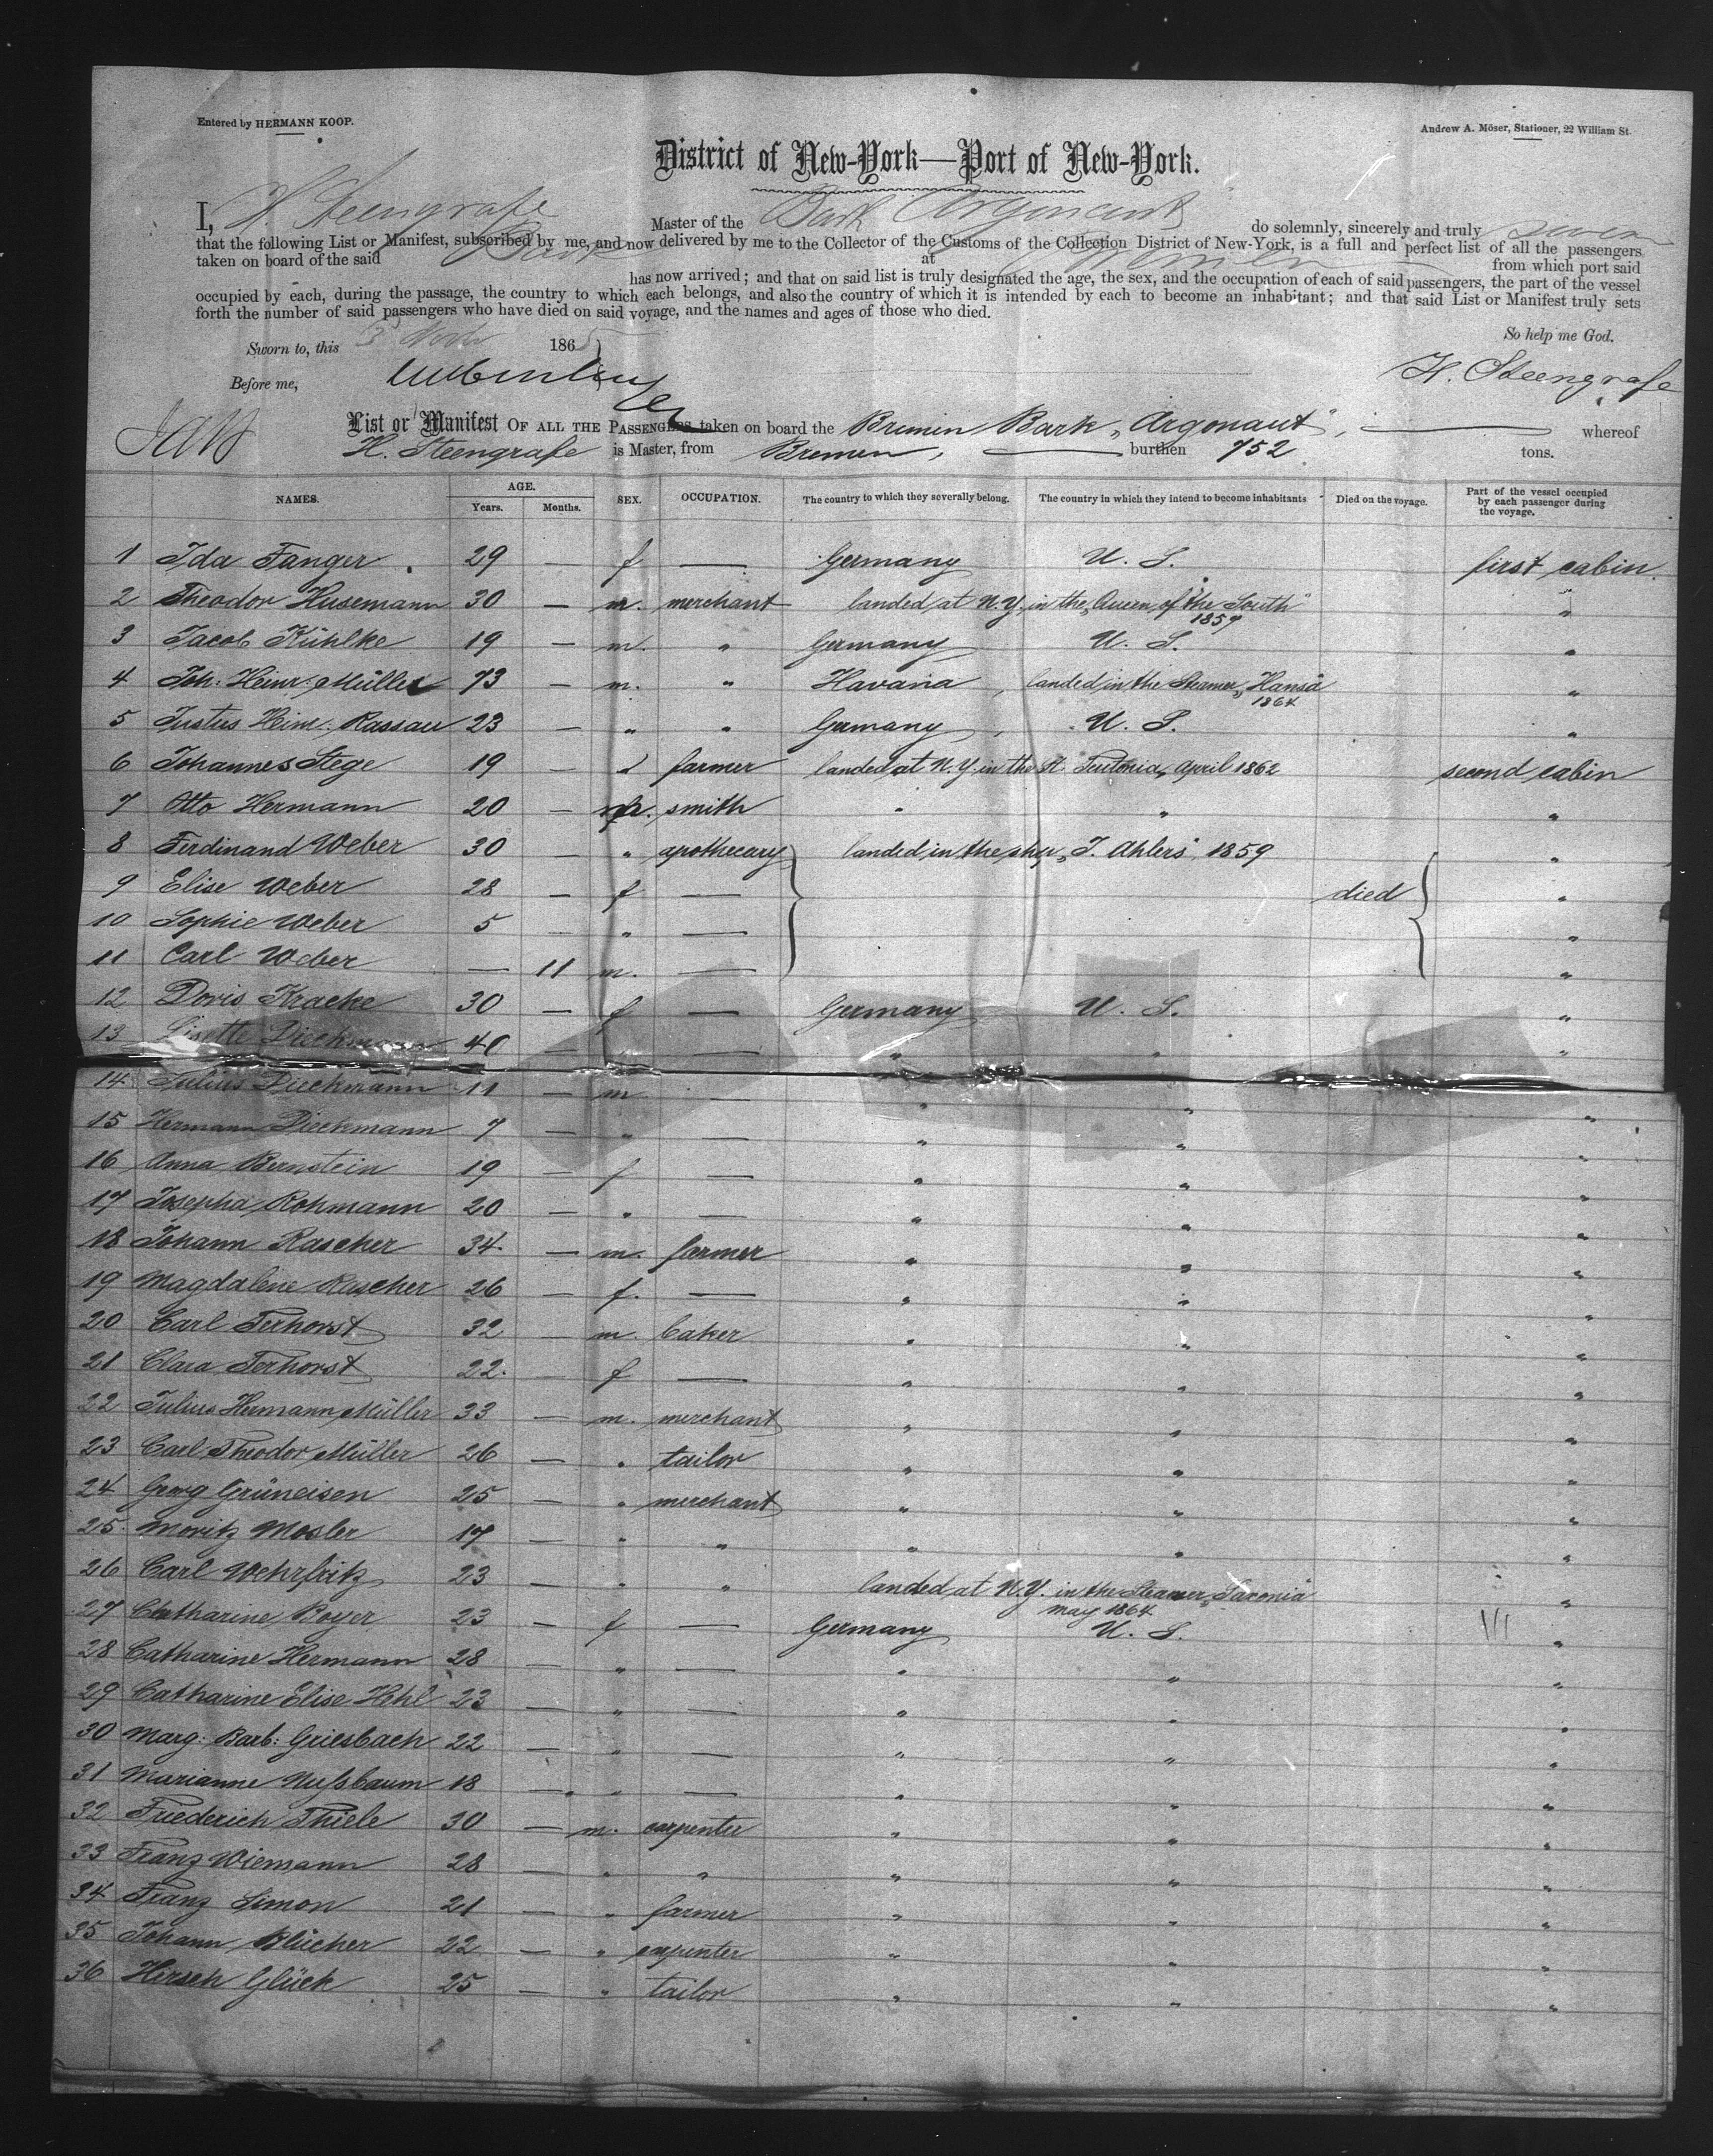 Entered by HERMANN KOOP.
Andrew A. Möser, Stationer, 22 William St.
District of New-York—Port of New-York.
I, H. Steengrafe Master of the Bark Argonaut do solemnly, sincerely and truly swear
that the following List or Manifest, subscribed by me, and now delivered by me to the Collector of the Customs of the Collection District of New-York, is a full and perfect list of all the passengers
taken on board of the said Bark at Bremen from which port said
has now arrived; and that on said list is truly designated the age, the sex, and the occupation of each of said passengers, the part of the vessel
occupied by each, during the passage, the country to which each belongs, and also the country of which it is intended by each to become an inhabitant; and that said List or Manifest truly sets
forth the number of said passengers who have died on said voyage, and the names and ages of those who died.
So help me God.
Sworn to, this 3 1865
Before me,
H. Steengrafe
List or Manifest OF ALL THE PASSENGERS taken on board the Bremen Bark „Argonaut", whereof
H. Steengrafe is Master, from Bremen, burthen 752 tons.
NAMES. AGE. Years. Months. SEX. OCCUPATION. The country to which they severally belong. The country in which they intend to become inhabitants Died on the voyage. Part of the vessel occupied by each passenger during the voyage.
1 Ida Fanger 29 — f — Germany U. S. first cabin.
2 Theodor Husemann 30 — m. merchant landed at N.Y. in the „Queen of the South" 1859 "
3 Jacob Kühlke 19 — m. " Germany U. S. "
4 Joh: Heinr: Müller 73 — m. " Havana, landed in the Steamer „Hansa 1864 "
5 Justus Heinr: Rassau 23 — " " Germany, U. S. "
6 Johannes Stege 19 — " farmer landed at N.Y. in the St. Teutonia, April 1862 second cabin
7 Otto Hermann 20 — m. smith " " "
8 Ferdinand Weber 30 — " apothecary landed in the ship „J. Ahlers" 1859 "
9 Elise Weber 28 — f — died "
10 Sophie Weber 5 — " — "
11 Carl Weber — 11 m. — "
12 Doris Kracke 30 — f — Germany U. S. "
13 Lisette Dieckmann 40 — — " " "
14 Julius Dieckmann 11 — m — " " "
15 Hermann Dieckmann 7 — " — " " "
16 Anna Bernstein 19 — f — " " "
17 Josepha Rohmann 20 — " — " " "
18 Johann Rascher 34 — m. farmer " " "
19 Magdalene Rascher 26 — f. — " " "
20 Carl Terhorst 32 — m. baker " " "
21 Clara Terhorst 22. — f — " " "
22 Julius Hermann Müller 33 — m. merchant " " "
23 Carl Theodor Müller 26 — " tailor " " "
24 Georg Grüneisen 25 — " merchant " " "
25. Moritz Mosler 17 — " " " " "
26 Carl Wehrfritz 23 — " " landed at N.Y. in the Steamer „Saxonia" May 1864 "
27 Catharine Royer 23 — f — Germany U. S. "
28 Catharine Hermann 28 — " — " " "
29 Catharine Elise Hehl 23 — " — " " "
30 Marg: Barb: Griesbach 22 — " — " " "
31 Marianne Nußbaum 18 — " — " " "
32 Friederich Thiele 30 — m. carpenter " " "
33 Franz Wiemann 28 — " " " " "
34 Franz Simon 21 — " farmer " " "
35 Johann Blücher 22 — " carpenter " " "
36 Hirsch Glück 25 — " tailor " " "